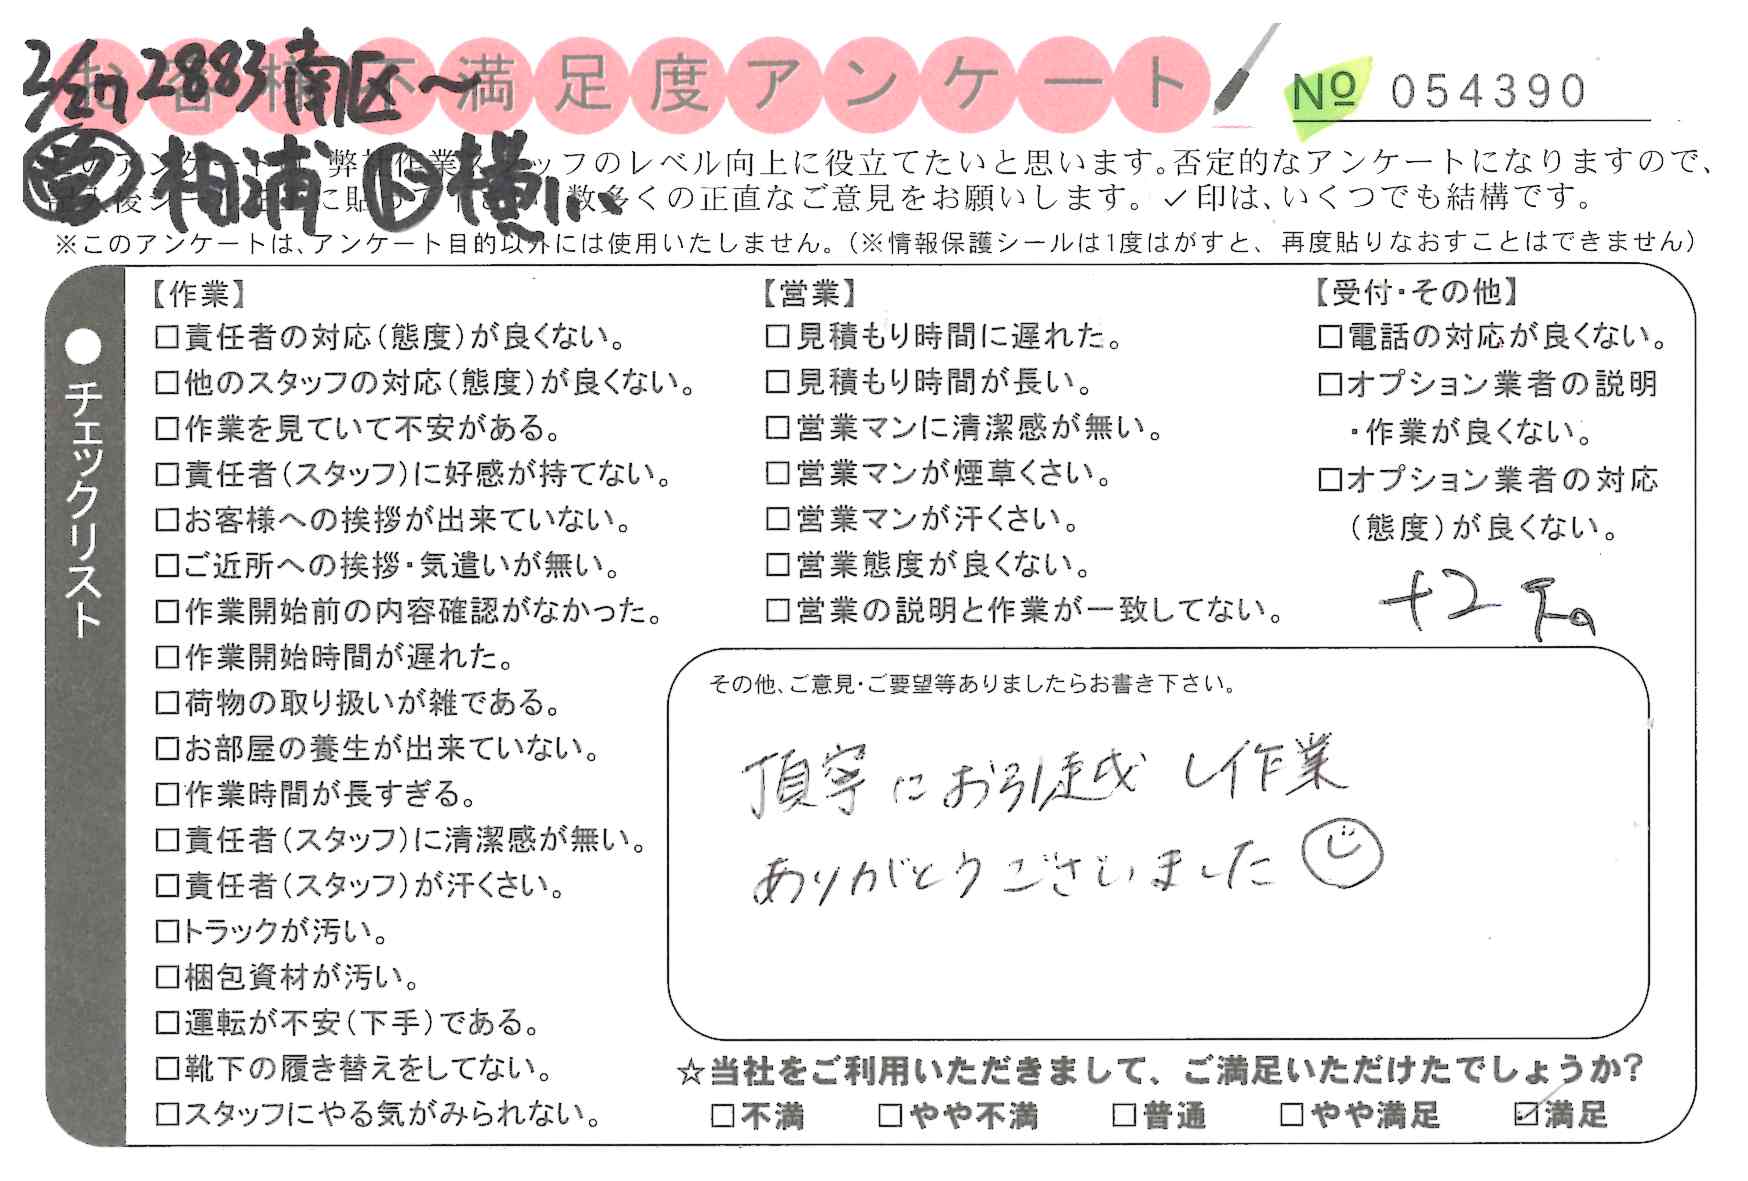 2/27 2883 南区〜
お客様不満足度アンケート
№ 054390
相浦 ト 横山
アンケート 弊社作業スタッフのレベル向上に役立てたいと思います。否定的なアンケートになりますので、
後シール に貼って 数多くの正直なご意見をお願いします。✓印は、いくつでも結構です。
※このアンケートは、アンケート目的以外には使用いたしません。（※情報保護シールは1度はがすと、再度貼りなおすことはできません）
●チェックリスト
【作業】
□責任者の対応（態度）が良くない。
□他のスタッフの対応（態度）が良くない。
□作業を見ていて不安がある。
□責任者（スタッフ）に好感が持てない。
□お客様への挨拶が出来ていない。
□ご近所への挨拶・気遣いが無い。
□作業開始前の内容確認がなかった。
□作業開始時間が遅れた。
□荷物の取り扱いが雑である。
□お部屋の養生が出来ていない。
□作業時間が長すぎる。
□責任者（スタッフ）に清潔感が無い。
□責任者（スタッフ）が汗くさい。
□トラックが汚い。
□梱包資材が汚い。
□運転が不安（下手）である。
□靴下の履き替えをしてない。
□スタッフにやる気がみられない。
【営業】
□見積もり時間に遅れた。
□見積もり時間が長い。
□営業マンに清潔感が無い。
□営業マンが煙草くさい。
□営業マンが汗くさい。
□営業態度が良くない。
□営業の説明と作業が一致してない。
【受付・その他】
□電話の対応が良くない。
□オプション業者の説明
・作業が良くない。
□オプション業者の対応
（態度）が良くない。
+2
その他、ご意見・ご要望等ありましたらお書き下さい。
頂寧にお引越し作業
ありがとうございました
☆当社をご利用いただきまして、ご満足いただけたでしょうか？
□不満 □やや不満 □普通 □やや満足 ☑満足